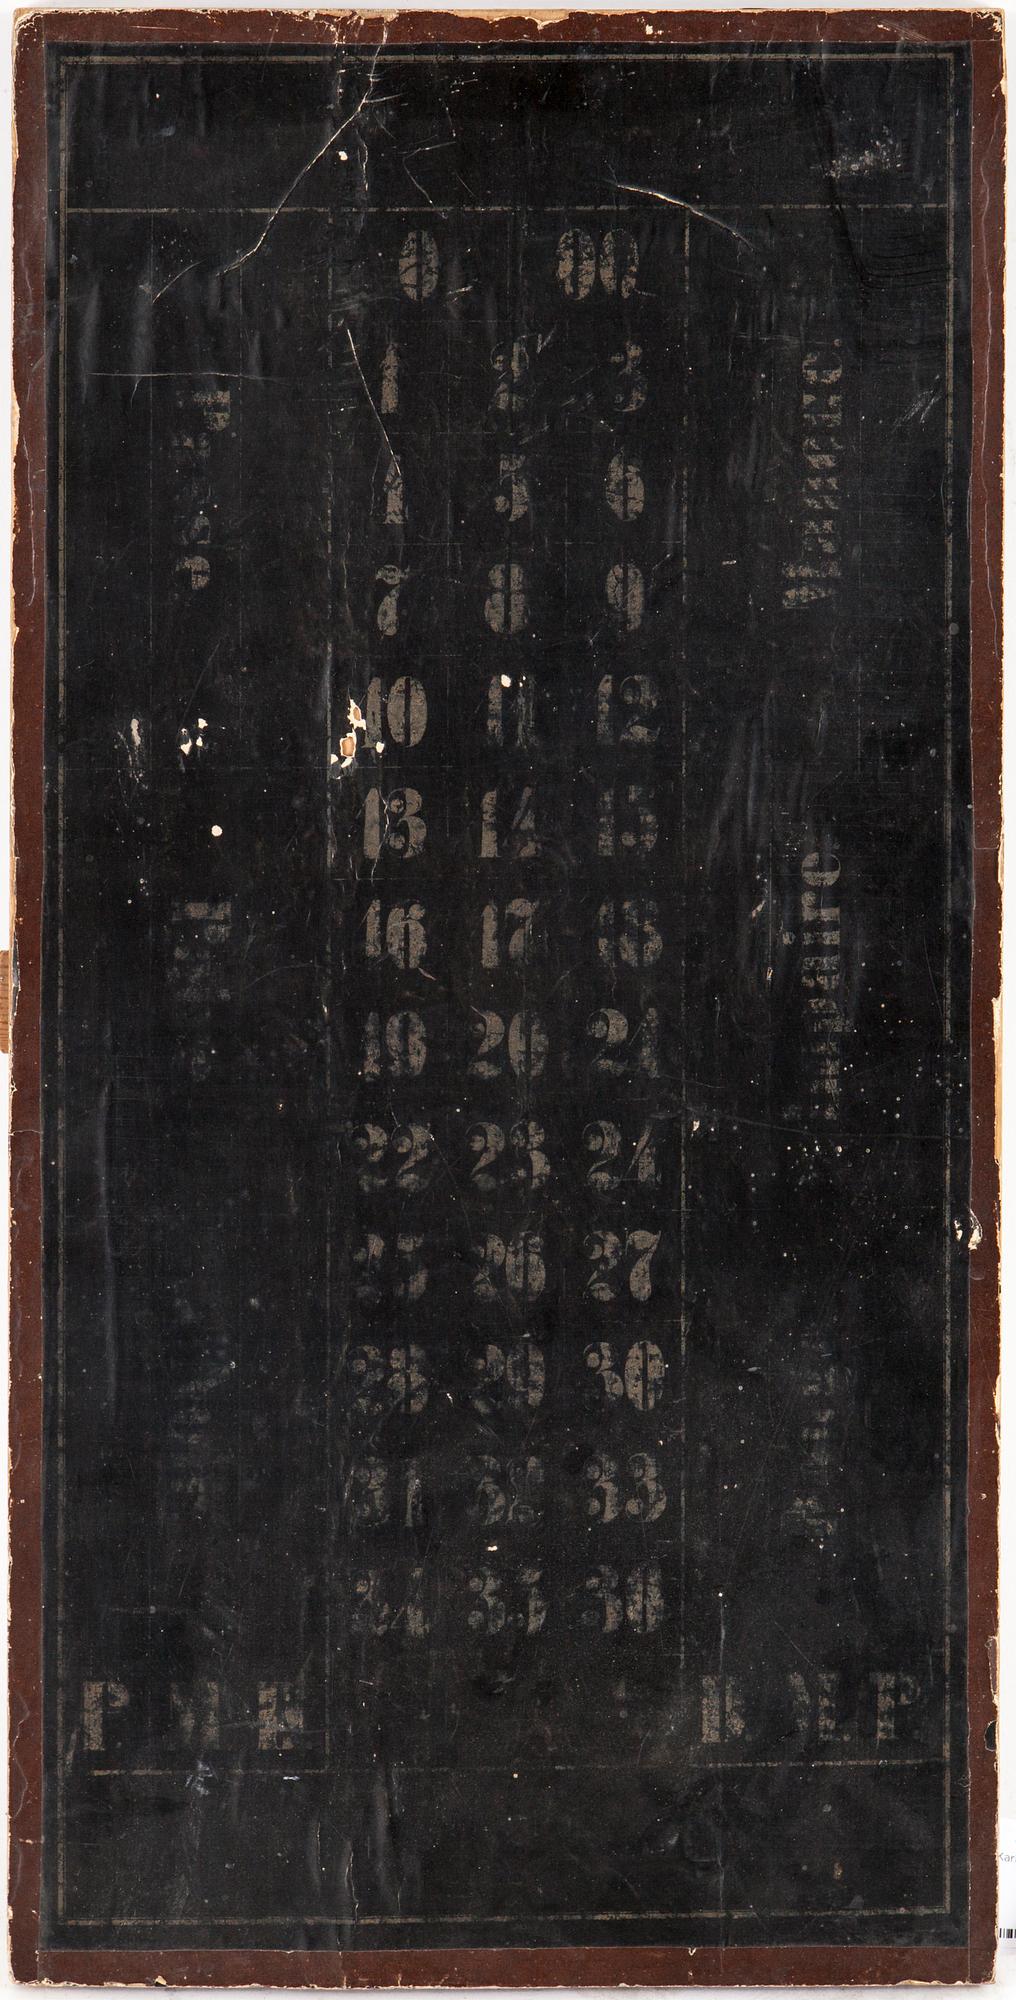 0 00
1 2 3
4 5 6
7 8 9
10 11 12
13 14 15
16 17 18
19 20 21
22 23 24
25 26 27
28 29 30
31 32 33
34 35 36
Passe
impaire
P. M
M. P